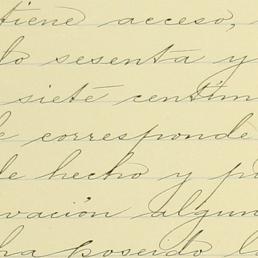 tiene acceso,
lo sesenta y
siete centim
corresponde
de hecho y p
vación algun
ha poseido l